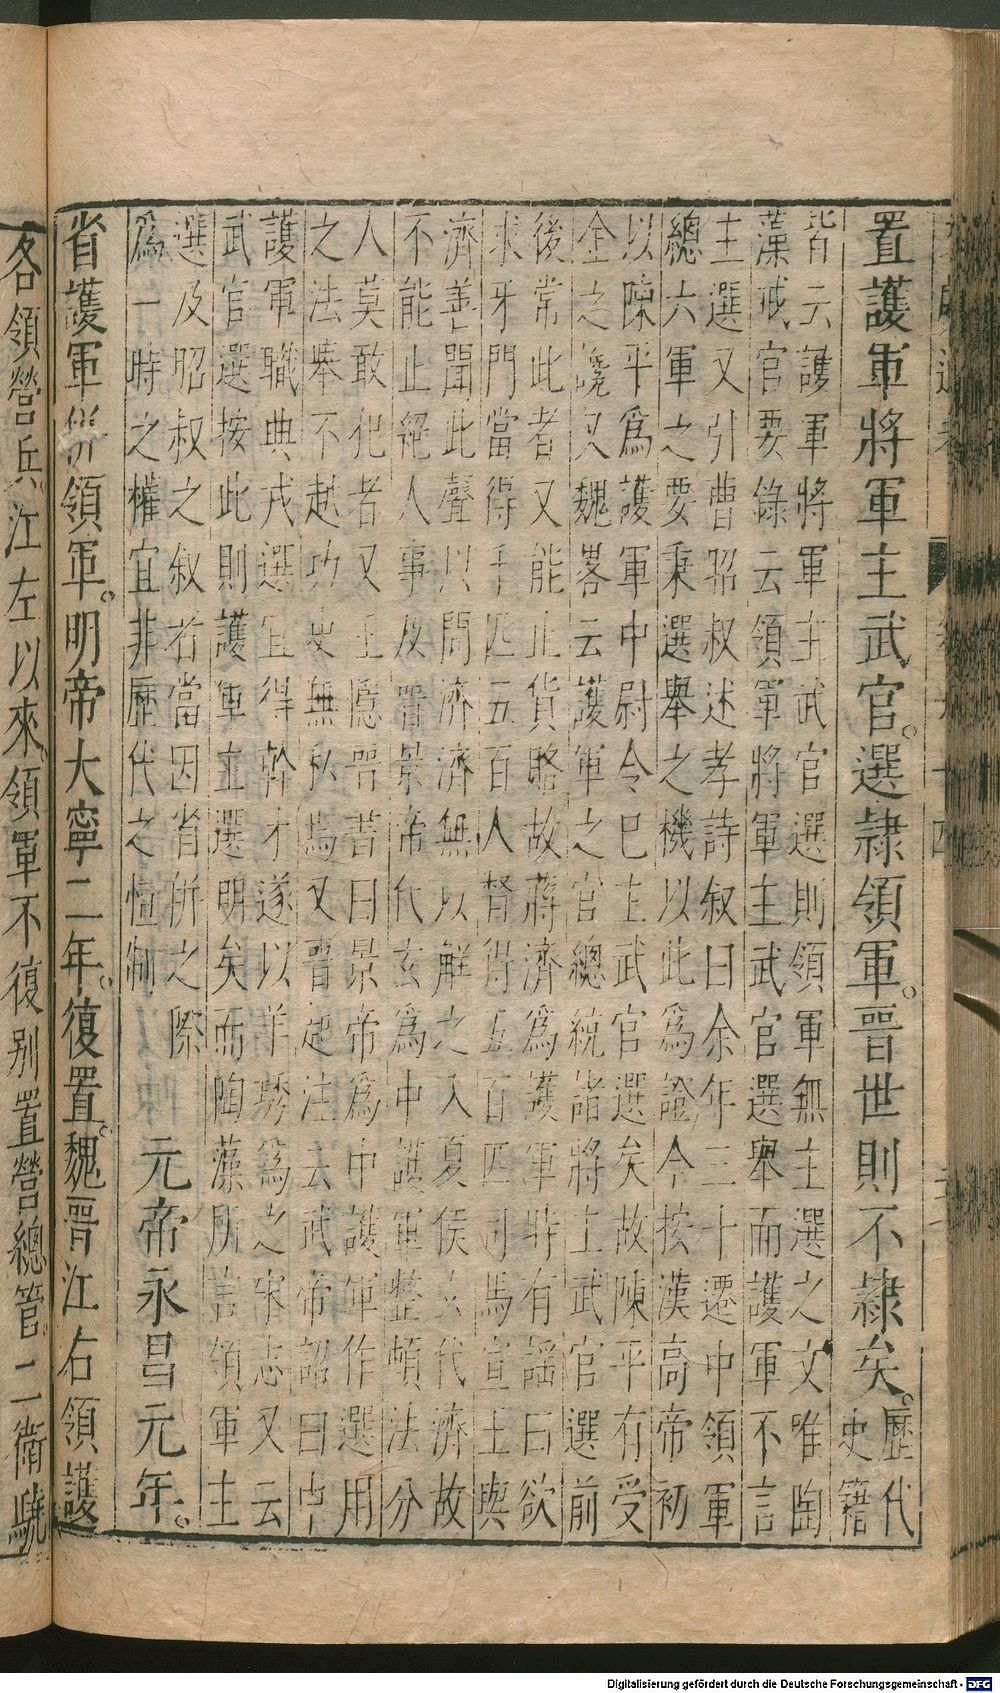 置護軍將軍主武官。選隸領軍。晉世則不隸矣。歷代
史籍
皆云護軍將軍主武官選則領軍無主選之文唯陶
藻戒官要錄云領軍將軍主武官選舉而護軍不言
主選又引曹昭叔述孝詩敘曰余年三十遷中領軍
總六軍之要秉選舉之機以此為證今按漢高帝初
以陳平為護軍中尉令已主武官選矣故陳平有受
全之讒又魏畧云護軍之官總統諸將主武官選前
後常此者又能止貨賂故蔣濟為護軍時有謡曰欲
求牙門當得千匹五百人督得五百匹司馬宣王與
濟善聞此聲以問濟濟無以解之入夏侯玄代濟故
不能止絕人事及晉景帝代玄為中護軍整頓法分
人莫敢犯者又王隱晉書曰景帝為中護軍作選用
之法舉不越功吏無私焉又晉起注云武帝詔曰中
護軍職典戎選宜得幹才遂以羊琇為之宋志又云
武官選按此則護軍主選明矣而陶藻所言領軍主
選及昭叔之敘若當因省併之際
為一時之權宜非歷代之恒制
元帝永昌元年。
省護軍併領軍。明帝大寧二年。復置。魏晉江右領護
各領營兵。江左以來。領軍不復别置營總管。二衛驍
Digitalisierung gefördert durch die Deutsche Forschungsgemeinschaft - DFG